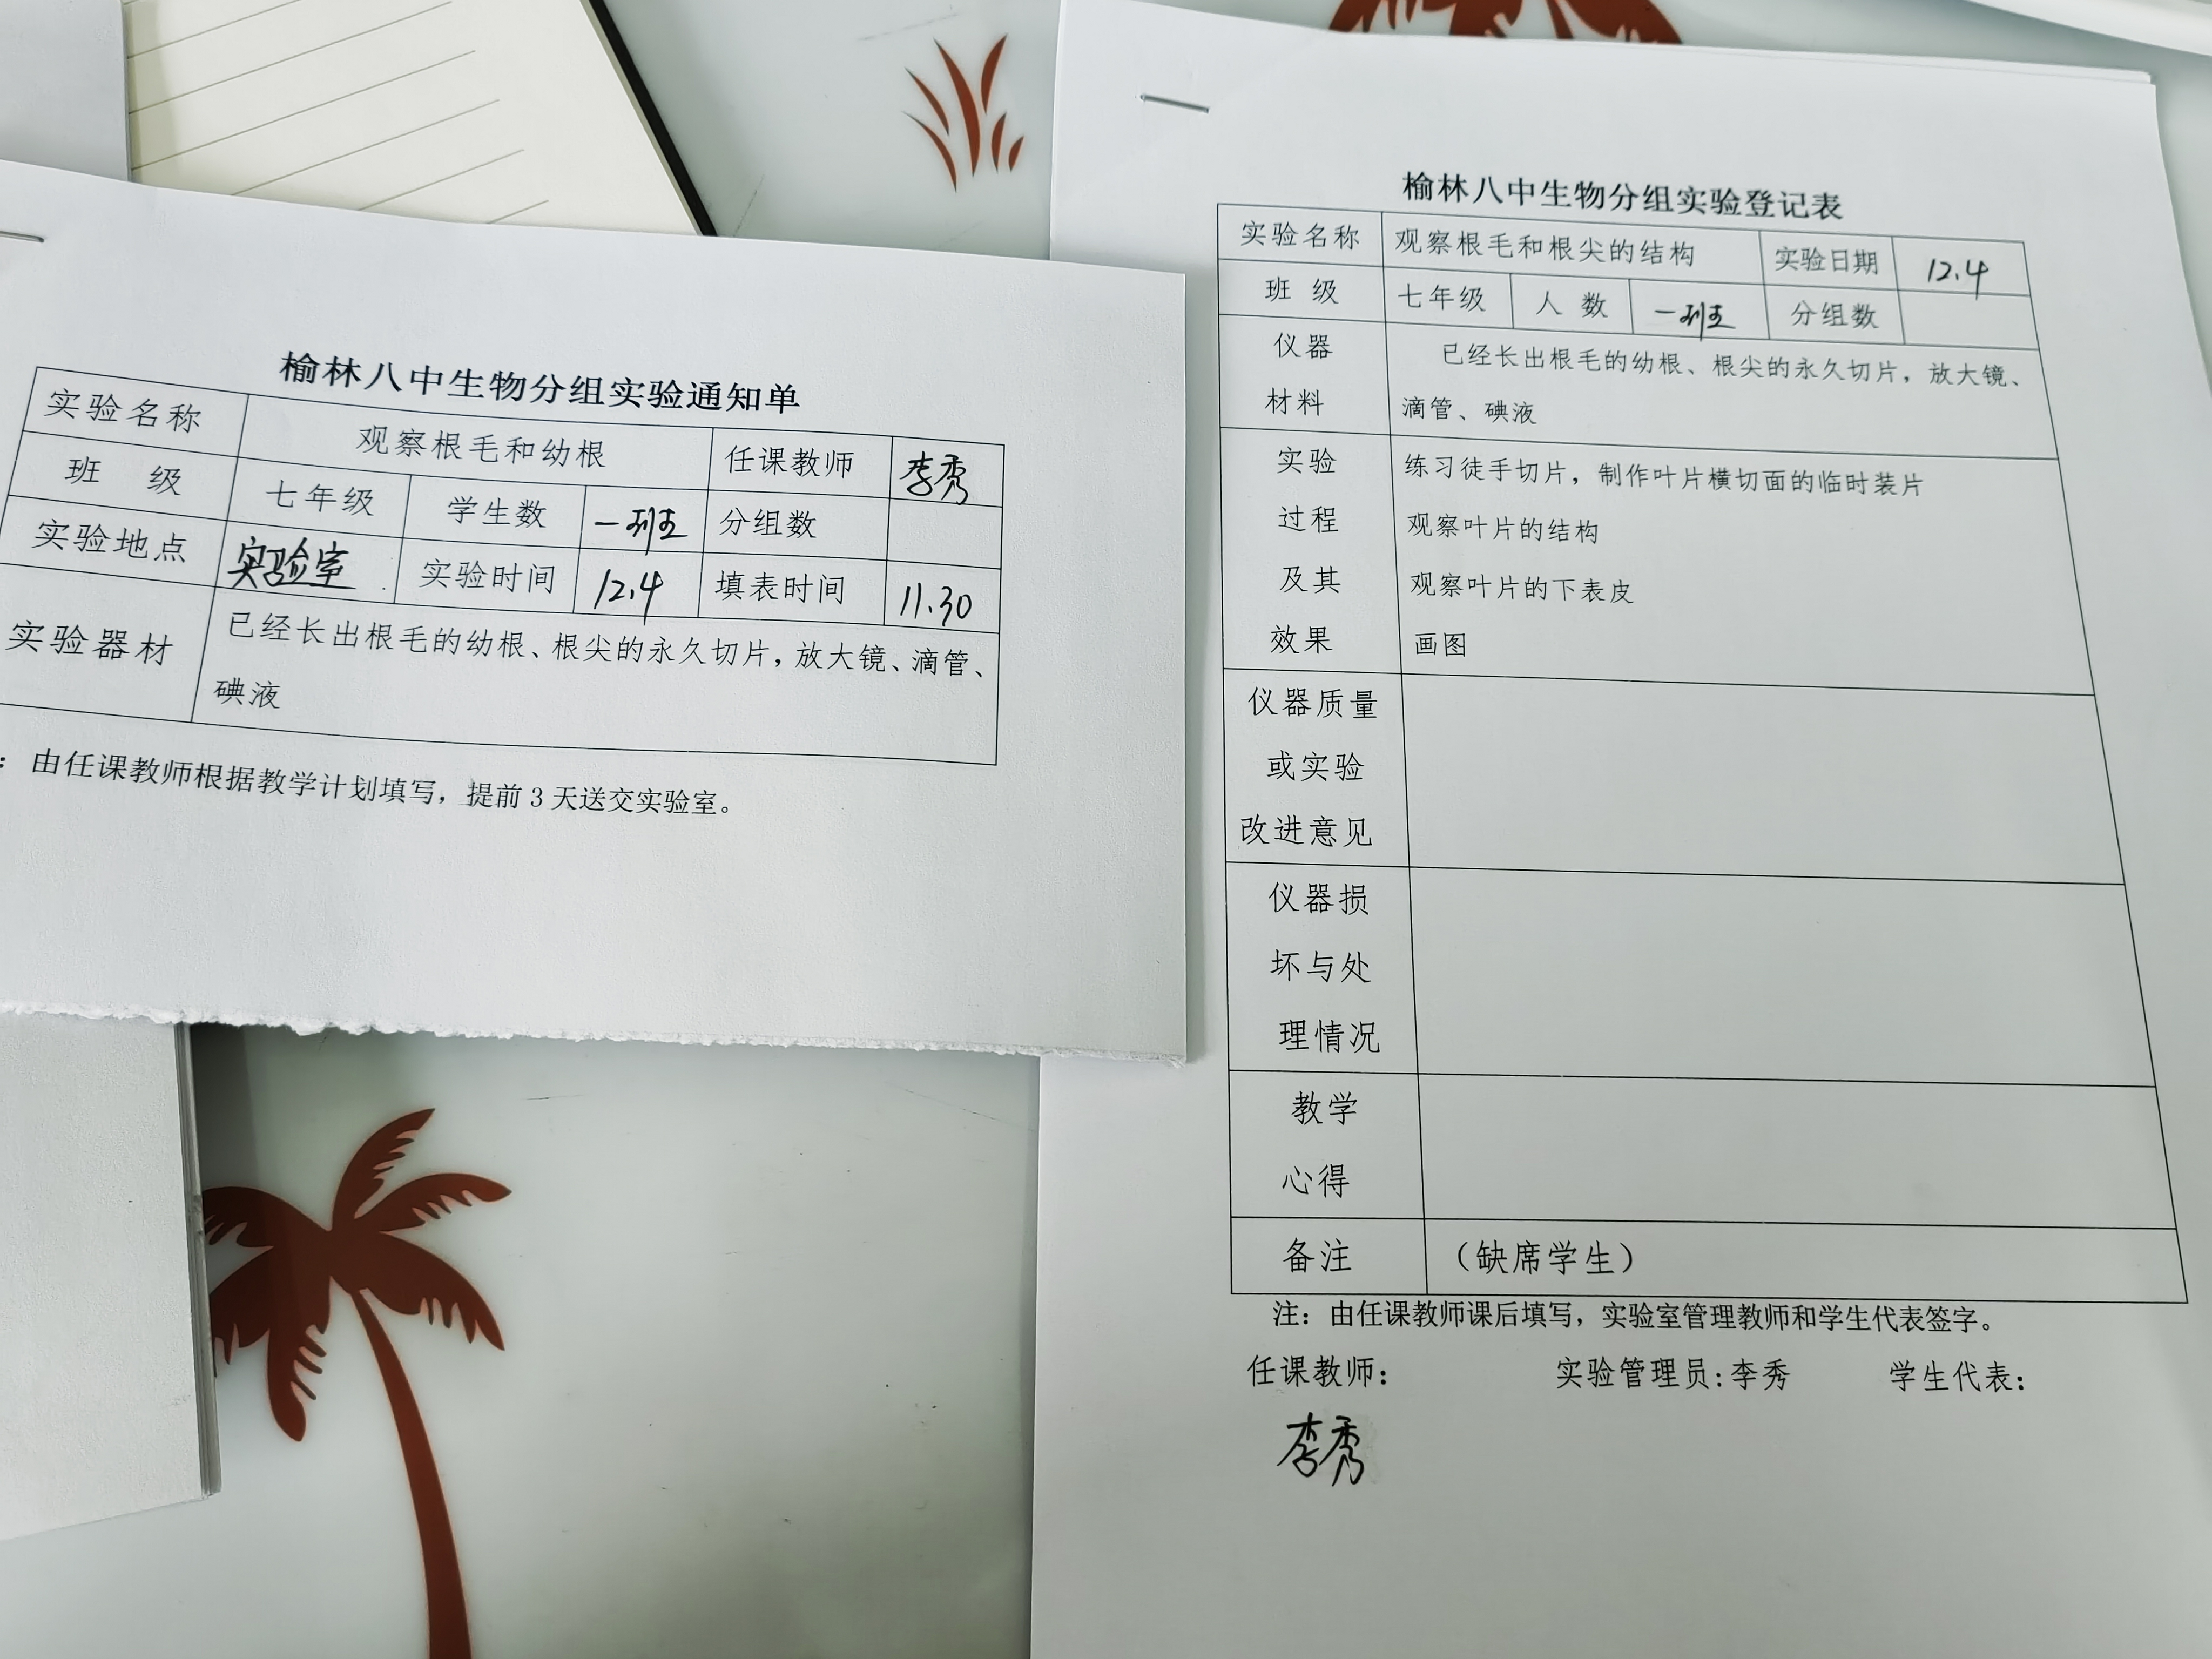 榆林八中生物分组实验通知单
实验名称 观察根毛和幼根 任课教师 李秀
班 级 七年级 学生数 一班 分组数
实验地点 实验室 实验时间 12.4 填表时间 11.30
实验器材 已经长出根毛的幼根、根尖的永久切片，放大镜、滴管、
碘液
：由任课教师根据教学计划填写，提前 3 天送交实验室。
榆林八中生物分组实验登记表
实验名称 观察根毛和根尖的结构 实验日期 12.4
班 级 七年级 人 数 一班 分组数
仪器 已经长出根毛的幼根、根尖的永久切片，放大镜、
材料 滴管、碘液
实验 练习徒手切片，制作叶片横切面的临时装片
过程 观察叶片的结构
及其 观察叶片的下表皮
效果 画图
仪器质量
或实验
改进意见
仪器损
坏与处
理情况
教学
心得
备注 （缺席学生）
注：由任课教师课后填写，实验室管理教师和学生代表签字。
任课教师： 实验管理员:李秀 学生代表：
李秀